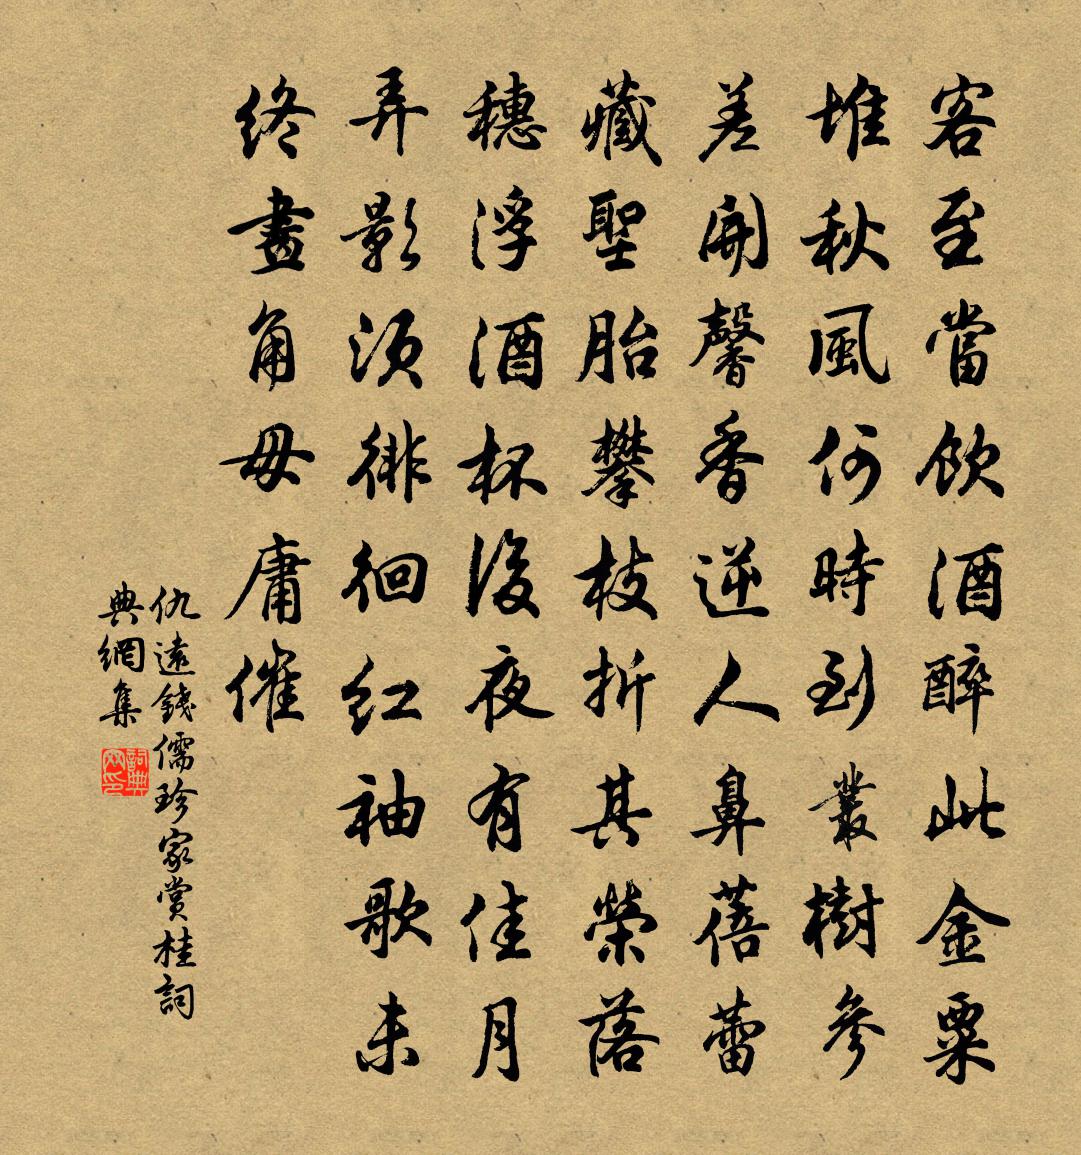 客至當飲酒醉此金粟
堆秋風何時到叢樹參
差開馨香逆人鼻蓓蕾
藏聖胎攀枝折其榮落
穗浮酒杯後夜有佳月
弄影須徘徊紅袖歌未
終畫角毋庸催
仇遠錢儒珍家賞桂詞
典網集
詞典網印